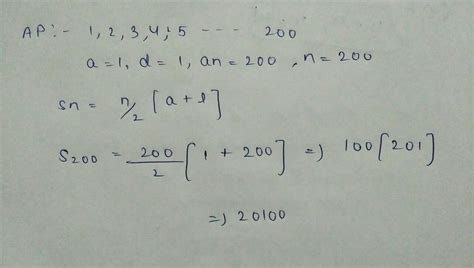 AP:- 1, 2, 3, 4, 5 --- 200
a = 1, d = 1, an = 200, n = 200
Sn = n/2 [a + l]
S200 = 200/2 [1 + 200] => 100[201]
=> 20100